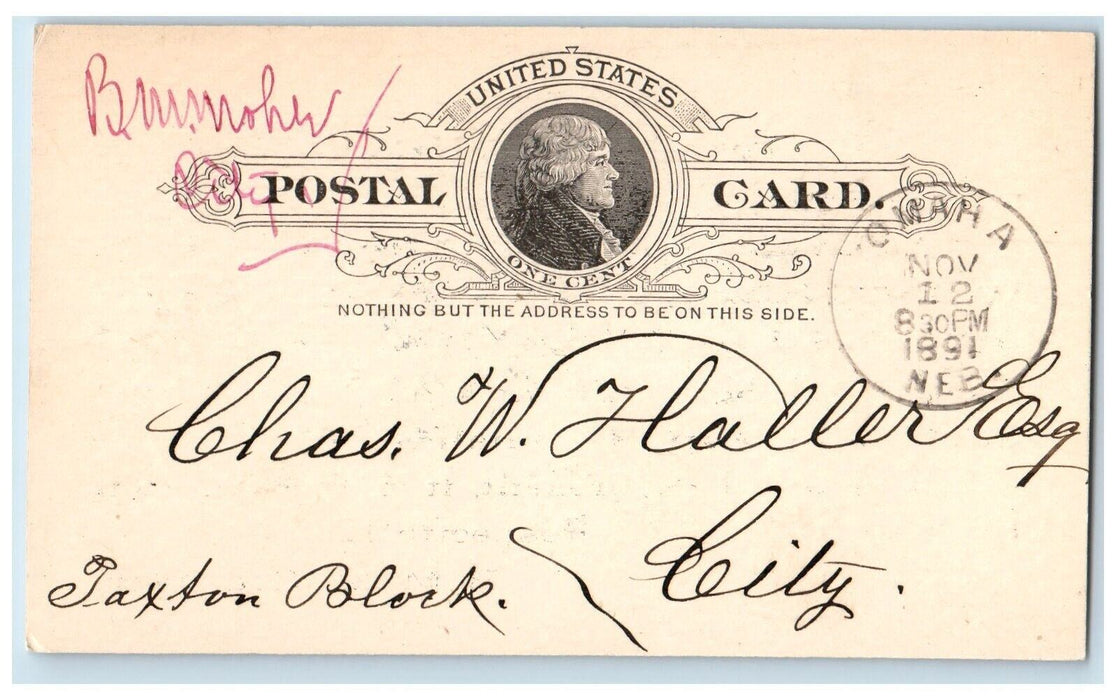 UNITED STATES
POSTAL CARD.
ONE CENT
NOTHING BUT THE ADDRESS TO BE ON THIS SIDE.
OMAHA
NOV
12
830PM
1891
NEB.
Chas. W. Haller Esq
City.
Paxton Block.